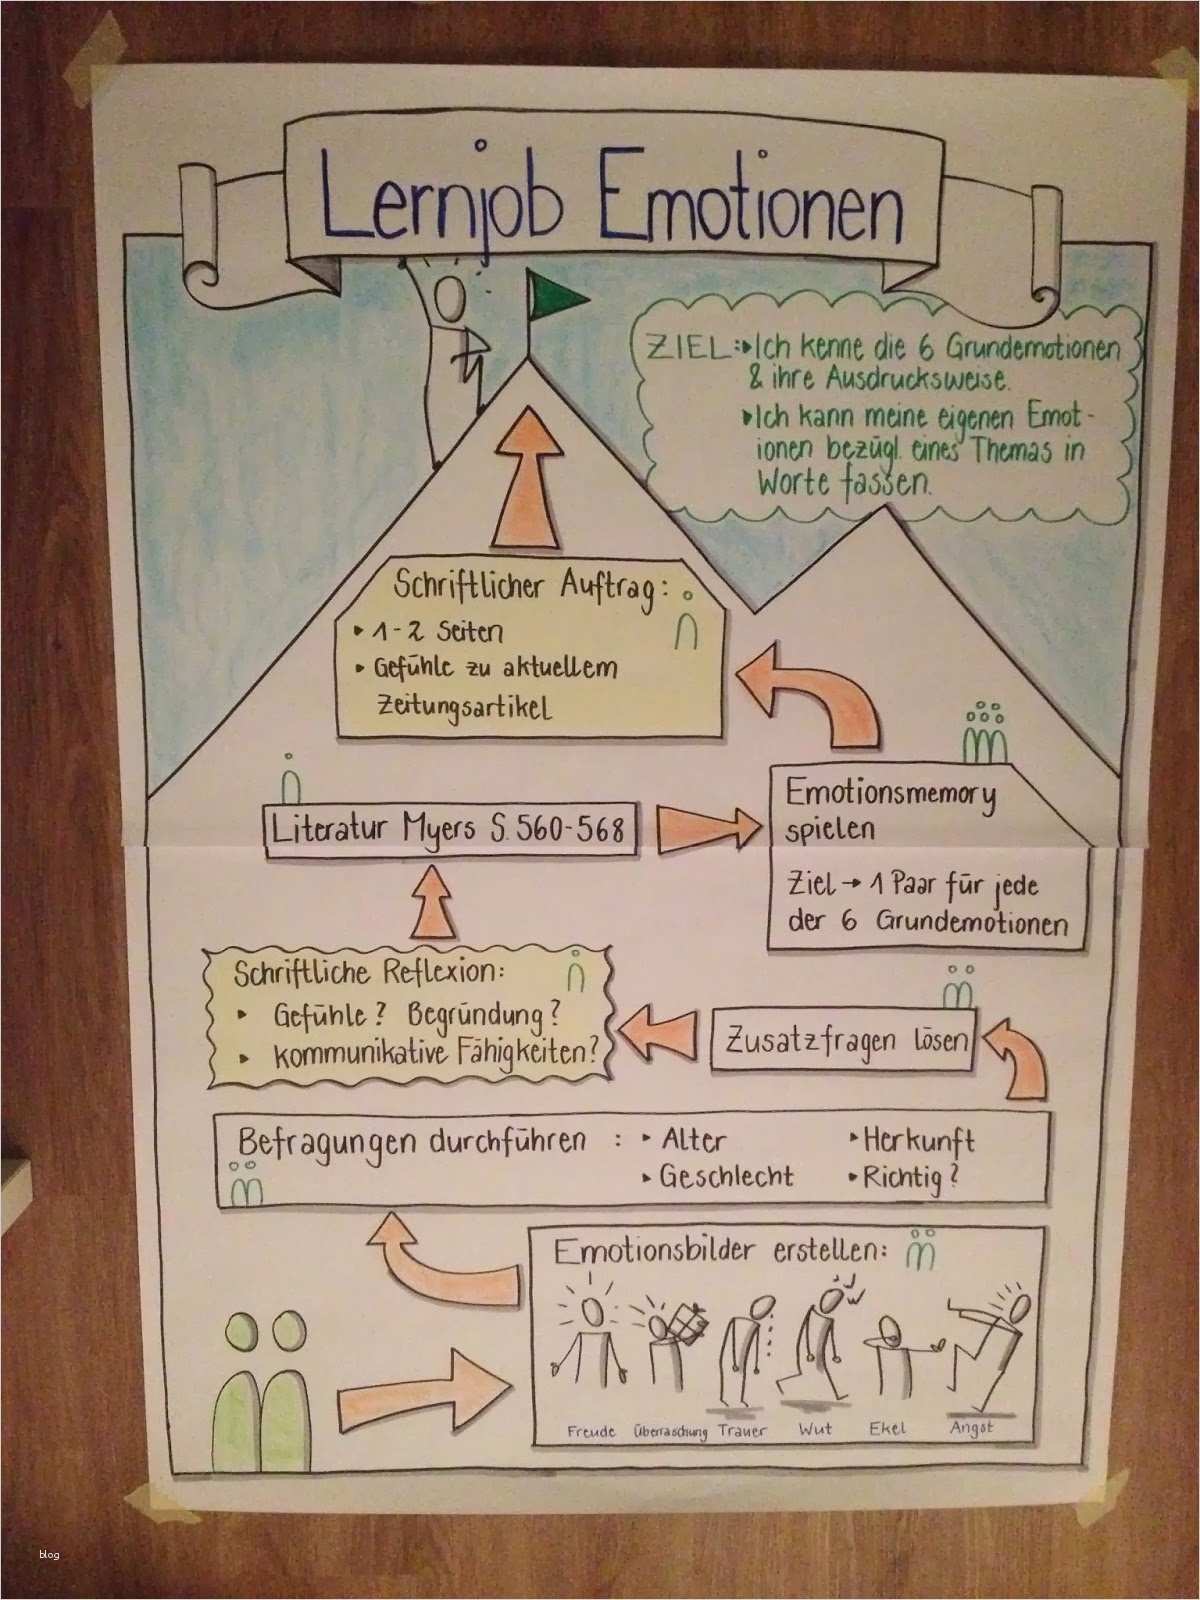 Lernjob Emotionen
ZIEL: ‣Ich kenne die 6 Grundemotionen
& ihre Ausdrucksweise.
‣Ich kann meine eigenen Emot-
ionen bezügl. eines Themas in
Worte fassen.
Schriftlicher Auftrag:
‣ 1-2 Seiten
‣ Gefühle zu aktuellem
Zeitungsartikel
Literatur Myers S. 560-568
Emotionsmemory
spielen
Ziel → 1 Paar für jede
der 6 Grundemotionen
Schriftliche Reflexion:
‣ Gefühle? Begründung?
‣ kommunikative Fähigkeiten?
Zusatzfragen lösen
Befragungen durchführen : ‣ Alter ‣ Herkunft
‣ Geschlecht ‣ Richtig?
Emotionsbilder erstellen:
Freude Überraschung Trauer Wut Ekel Angst
blog